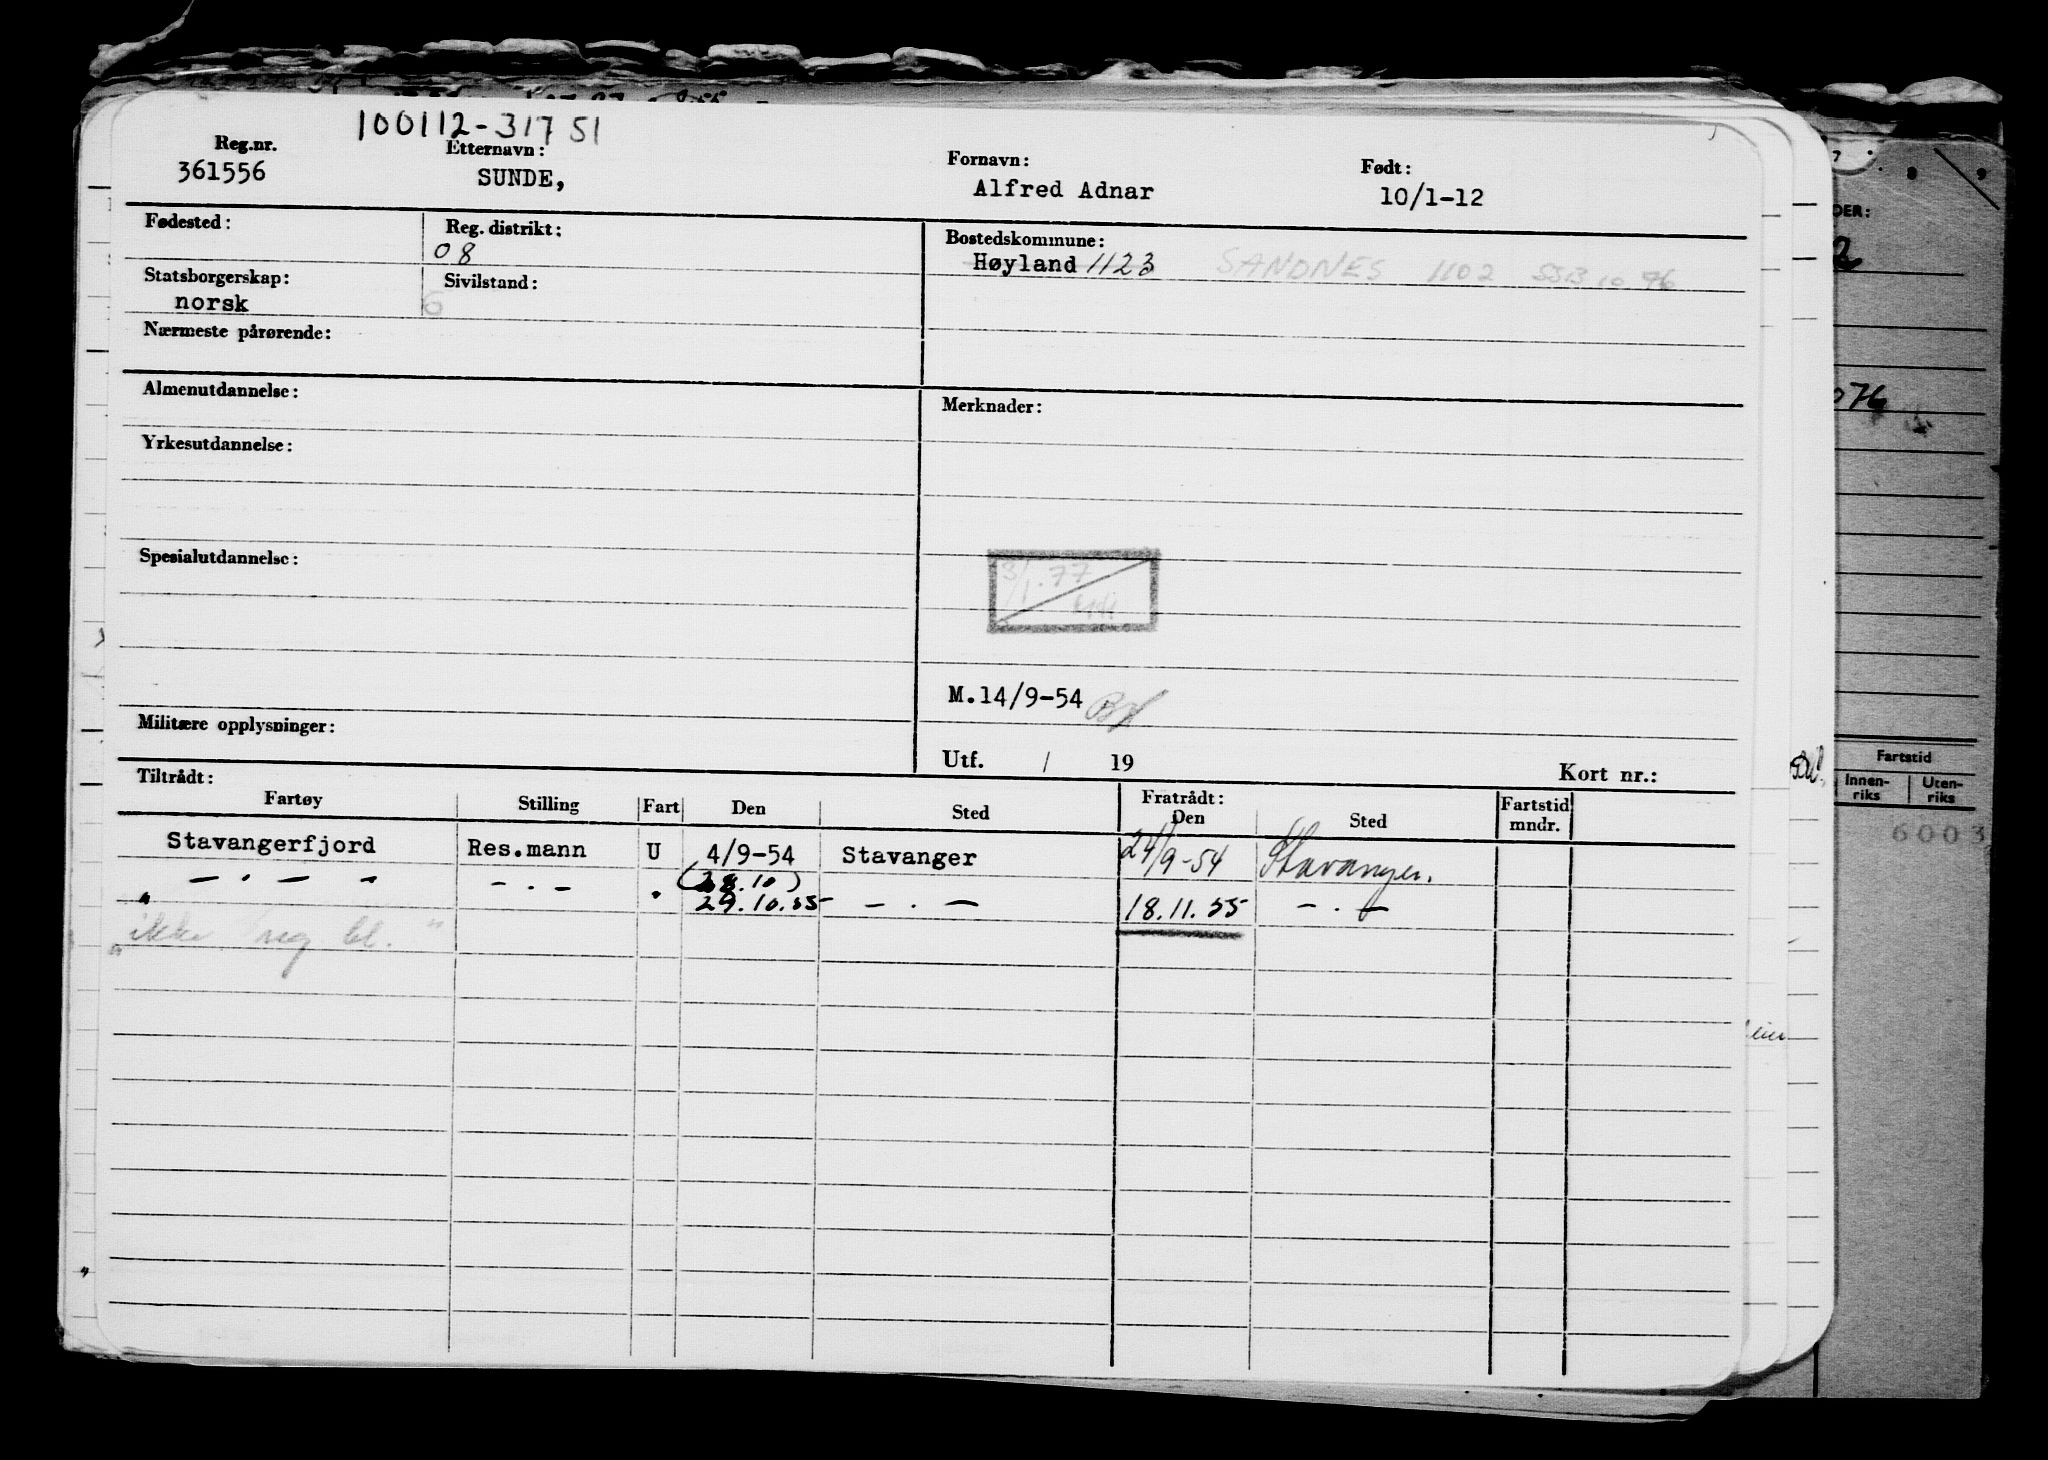 100112-317 51
Reg.nr. Etternavn: Fornavn: Født:
361556 SUNDE, Alfred Adnar 10/1-12
Fødested: Reg. distrikt: Bostedskommune:
08 Høyland 1123 SANDNES 1102 SSB 10.76
Statsborgerskap: Sivilstand:
norsk 6
Nærmeste pårørende:
Almenutdannelse: Merknader:
Yrkesutdannelse:
Spesialutdannelse:
3/1.77
M.14/9-54
Militære opplysninger:
Utf. / 19 Kort nr.:
Tiltrådt: Fratrådt:
Fartøy Stilling Fart Den Sted Den Sted Fartstid mndr.
Stavangerfjord Res.mann U 4/9-54 Stavanger 24/9-54 Stavanger.
(28.10)
" — . — " - . - " 29.10.55 — . — 18.11.55 - . -
"ikke reg bl."
DER:
076
Fartstid
Innen-riks Uten-riks
6003